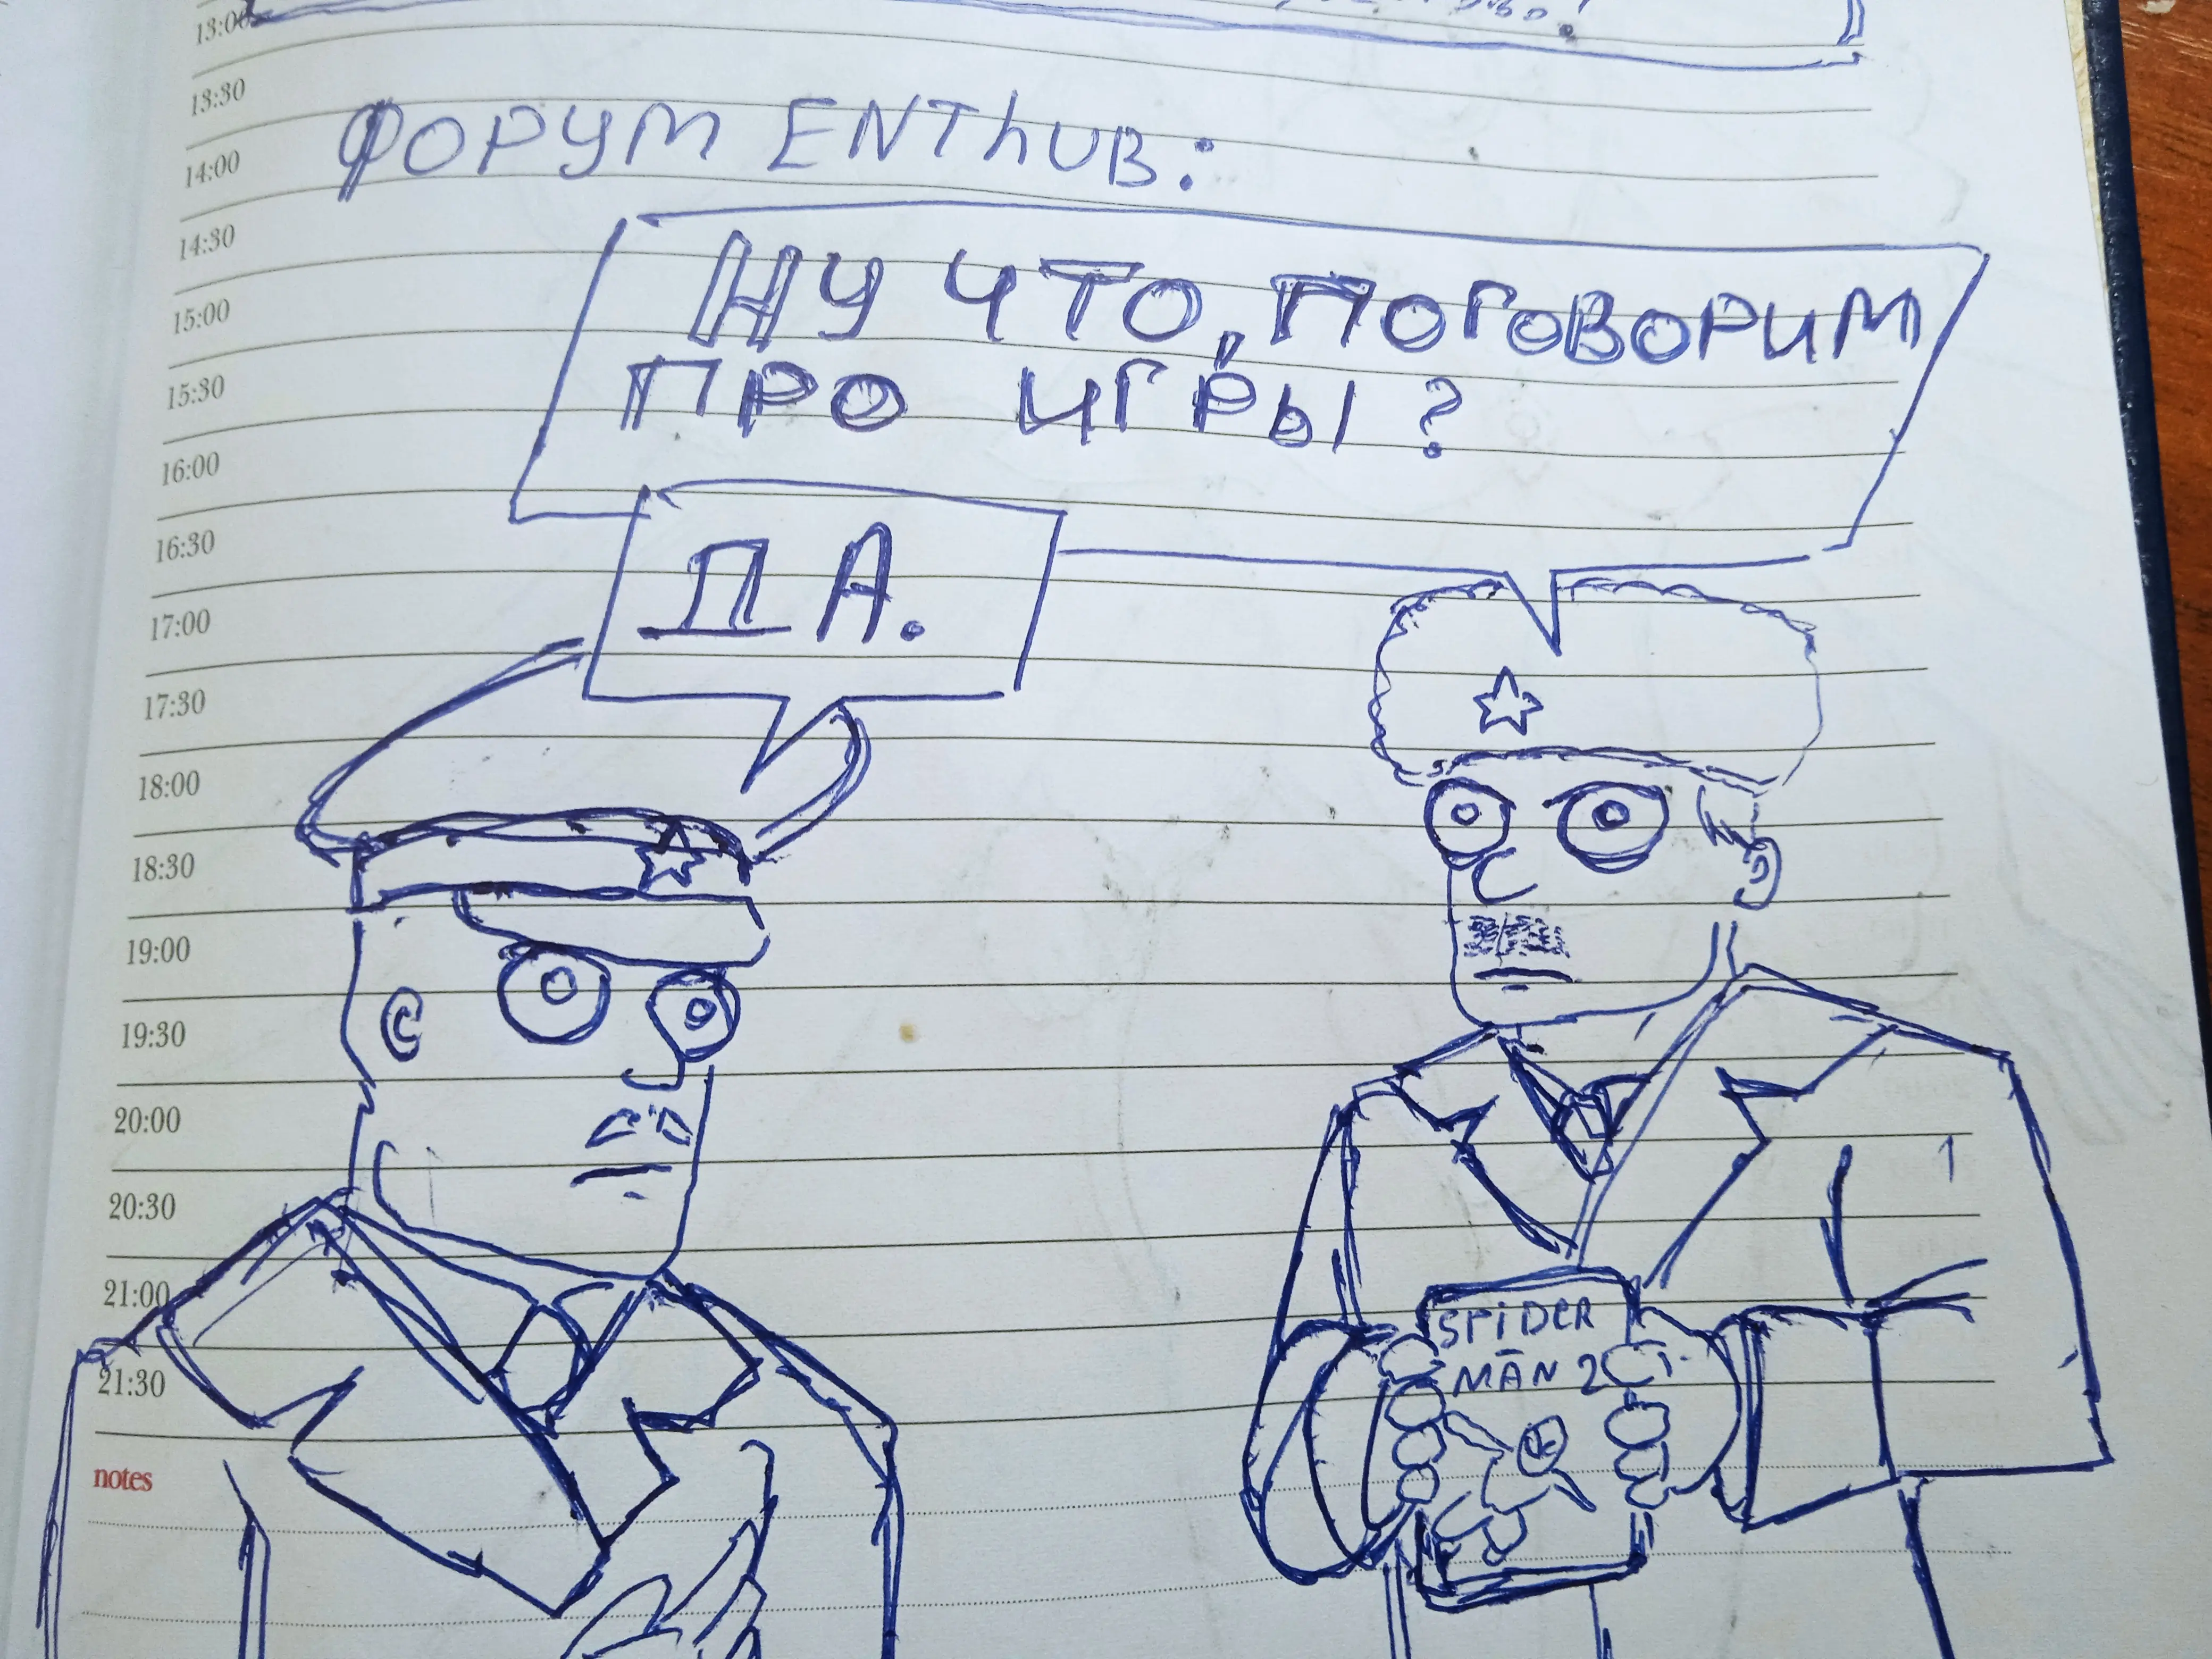 13:00
13:30
ФОРУМ ENThUB:
14:00
14:30
НУ ЧТО, ПОГОВОРИМ
15:00
ПРО ИГРЫ?
15:30
16:00
16:30
ДА.
17:00
17:30
18:00
18:30
19:00
19:30
20:00
20:30
21:00
SPIDER
MAN 2
21:30
notes